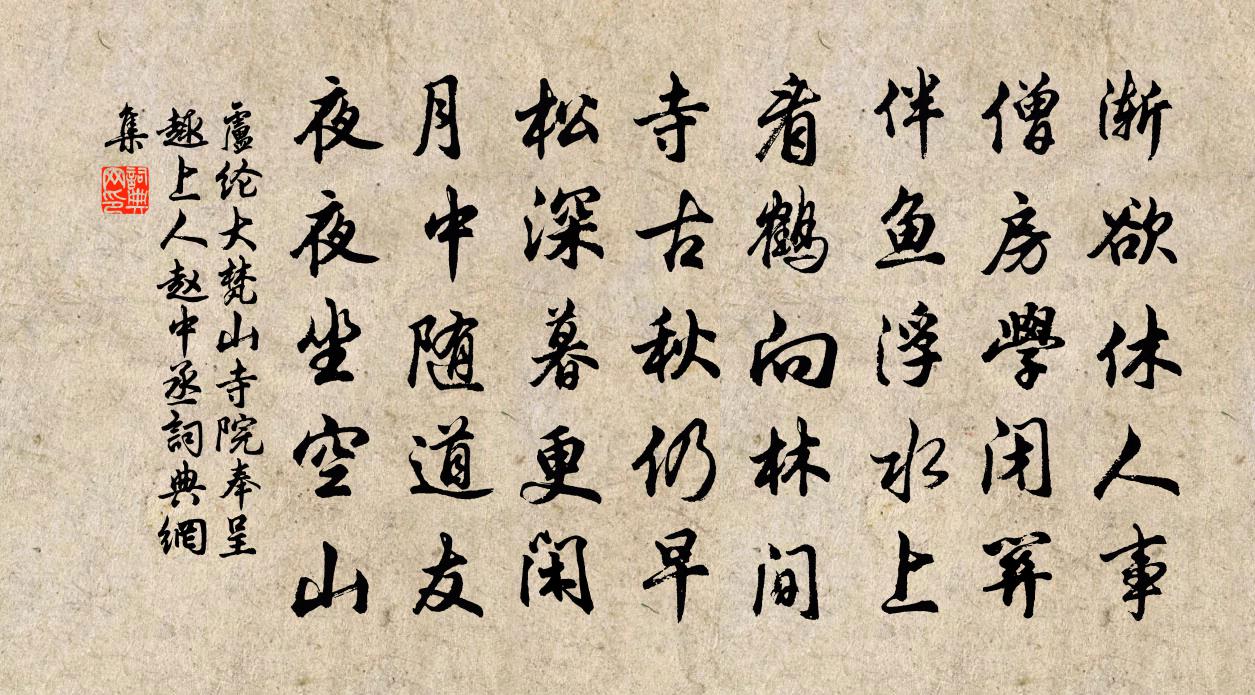 渐欲休人事
僧房學闭关
伴鱼浮水上
看鹤向林间
寺古秋仍早
松深暮更闲
月中随道友
夜夜坐空山
盧纶大梵山寺院奉呈
趣上人赵中丞詞典網
集
詞典网印